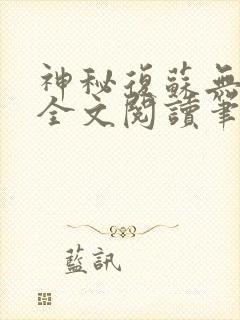 神秘復蘇無
全文閱讀筆
藍訊